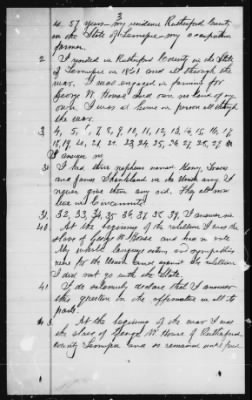 3
57 years my residence Rutherford County
in the State of Tennessee my occupation
farmer
2 I resided in Rutherford County in the State
of Tennessee in 1861 and all through the
war. I was engaged in farming for
George W. House and own no land of my
own. I was at home in person all through
the war.
3 4, 5, 7, 8, 9, 10, 11, 12, 13, 14, 15, 16, 17
18, 19, 20, 21, 22, 23, 24, 25, 26, 27, 28, 29
I answer no
31 I had three nephews named Henry, Isaac
and James in the Union army I
never give them any aid. They all now
live in Cincinnati
31. 32, 33, 34, 35, 36, 37, 38, 39, I answer no
40 At the beginning of the rebellion I was the
slave of George W House and had no vote
My whole language action and sympathies
were for the Union and against the rebellion
I did not go with the State.
41 I do solemnly declare that I answer
this question in the affirmative in all its
parts.
43 At the beginning of the war I was
the slave of George W House of Rutherford
County Tennessee and so remained until